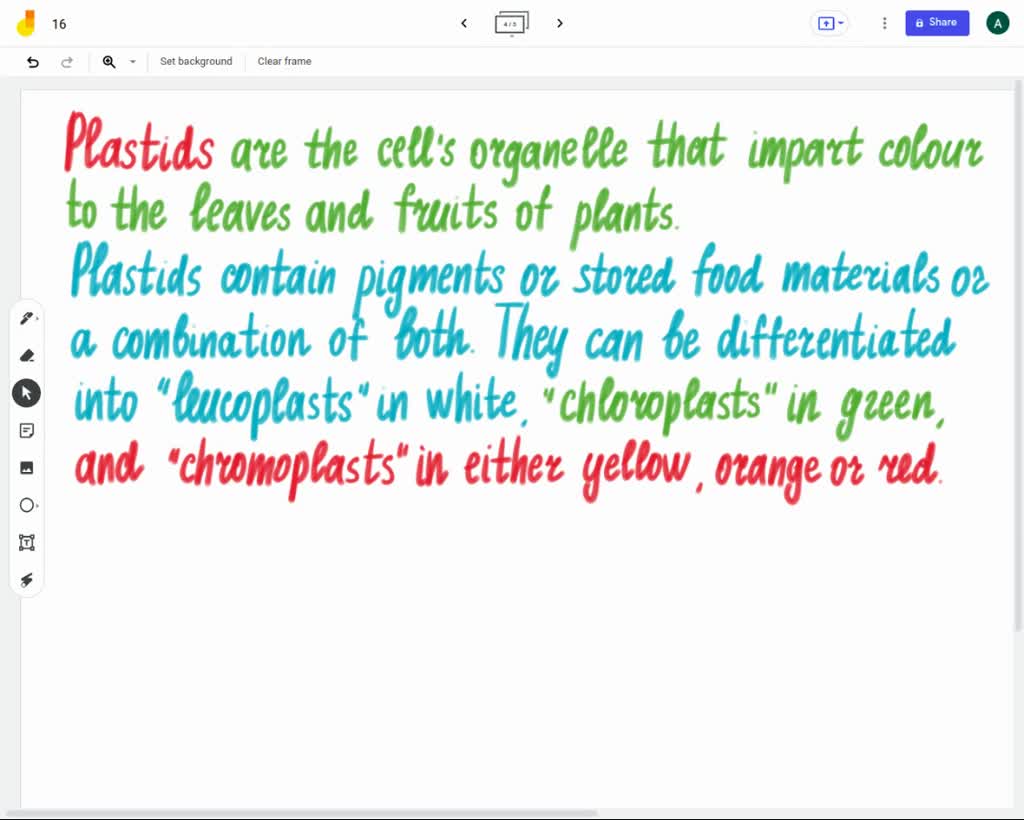 16
4 / 5
Share
A
Set background
Clear frame
Plastids are the cell's organelle that impart colour
to the leaves and fruits of plants.
Plastids contain pigments or stored food materials or
a combination of both. They can be differentiated
into "leucoplasts" in white, "chloroplasts" in green,
and "chromoplasts" in either yellow, orange or red.
T